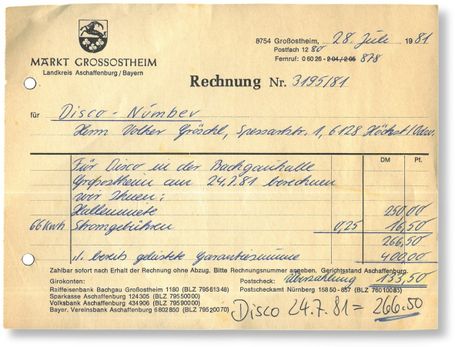 MARKT GROSSOSTHEIM
Landkreis Aschaffenburg / Bayern
8754 Großostheim, 28. Juli 1981
Postfach 12 80
Fernruf: 0 60 26 - 2 04 / 2 05 878
Rechnung Nr. 3195/81
für Disco - Number
Herrn Volker Gröschl, Spessartstr. 1, 6128 Höchst/Odw.
DM Pf.
Für Disco in der Bachgauhalle
Großostheim am 24.7.81 berechnen
wir Ihnen:
Hallenmiete 250,00
66 kwh Stromgebühren 0,25 16,50
266,50
./. bereits geleistete Garantiesumme 400,00
Zahlbar sofort nach Erhalt der Rechnung ohne Abzug. Bitte Rechnungsnummer angeben. Gerichtsstand Aschaffenburg.
133,50
Girokonten:
Postscheck:
Raiffeisenbank Bachgau Großostheim 1180 (BLZ 795 613 48)
Postscheckamt Nürnberg 158 50-857 (BLZ 760 100 85)
Sparkasse Aschaffenburg 124 305 (BLZ 795 500 00)
Volksbank Aschaffenburg 434 906 (BLZ 795 900 00)
Bayer. Vereinsbank Aschaffenburg 6 802 850 (BLZ 795 200 70)
Disco 24.7.81 = 266.50